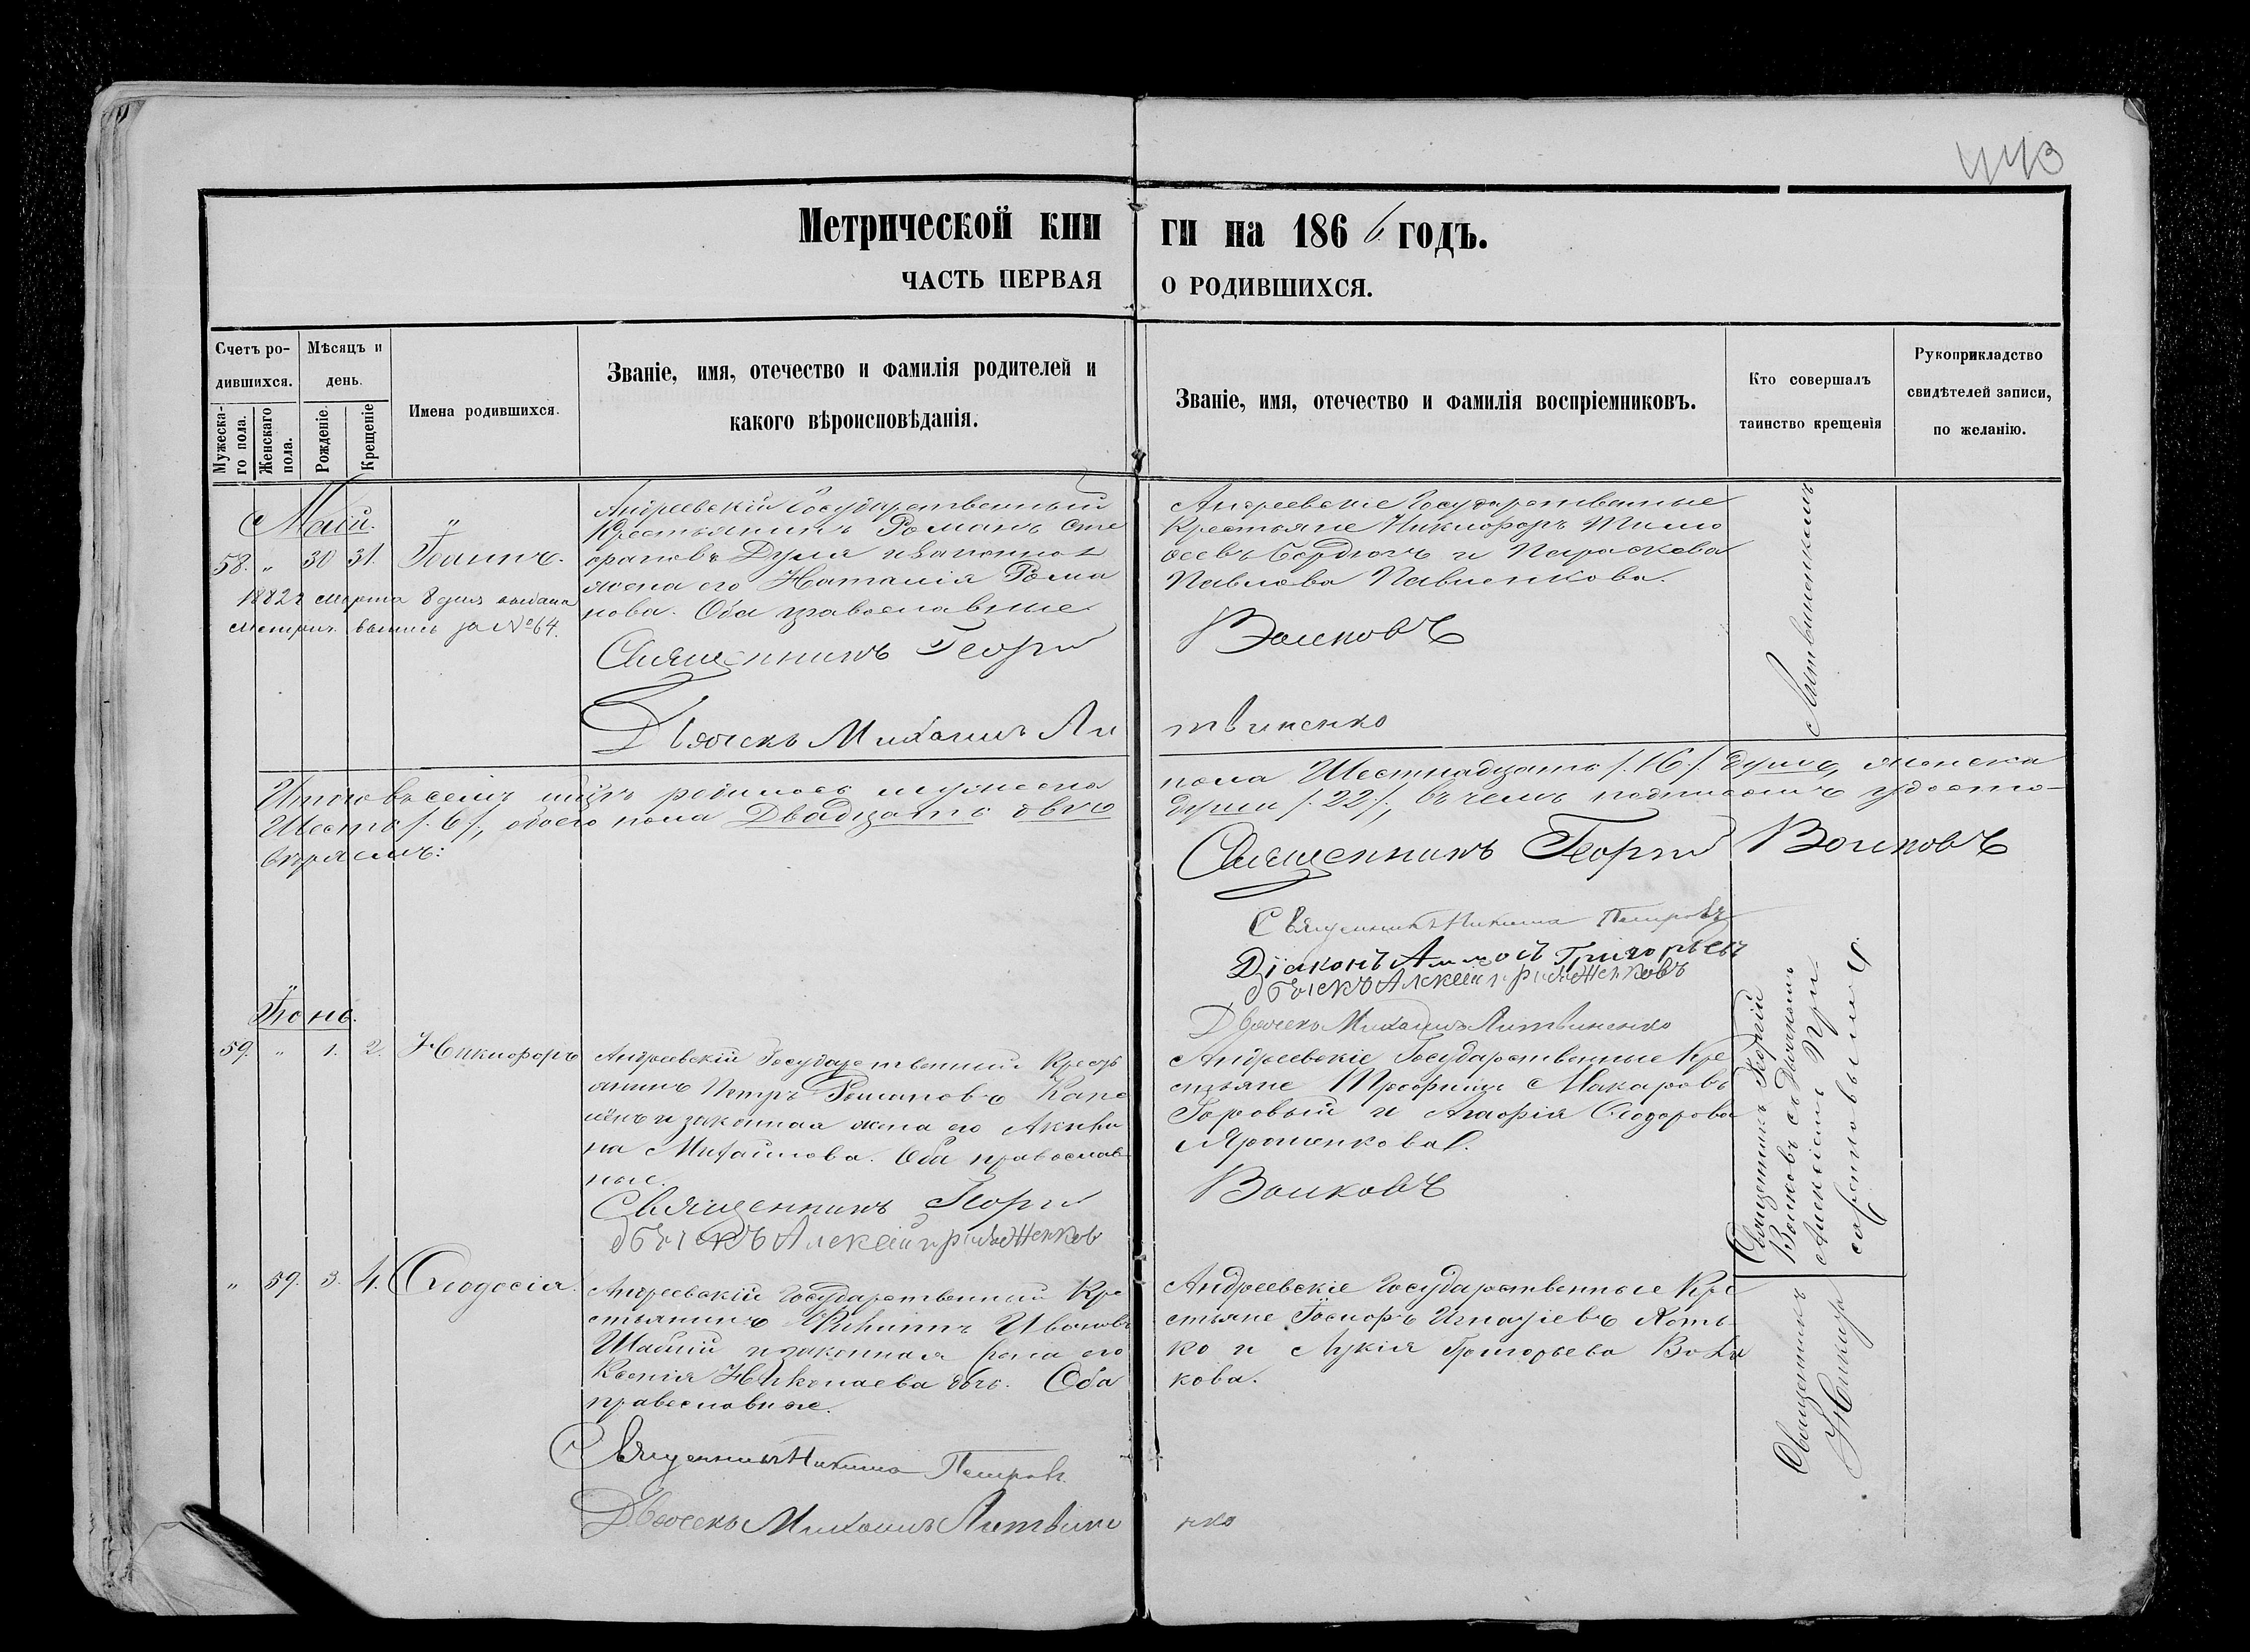 443
Метрической кни ги на 1866 годъ.
ЧАСТЬ ПЕРВАЯ О РОДИВШИХСЯ.
Счетъ ро-
дившихся.
Мужеска-
го пола.
Женскаго
пола.
Мѣсяцъ и
день.
Рожденіе.
Крещеніе
Имена родившихся.
Званіе, имя, отечество и фамилія родителей и
какого вѣроисповѣданія.
Званіе, имя, отечество и фамилія воспріемниковъ.
Кто совершалъ
таинство крещенія
Рукоприкладство
свидѣтелей записи,
по желанію.
Май.
58. " 30 31. Іоаннъ.
1882 г марта 8 дня выдана
метрич. выпись за № 64.
Андреевскій Государственный
Крестьянинъ Романъ Сте
фановъ Дуля и законная
жена его Наталія Рома
нова. Оба православные.
Священникъ Георгій
Дьячекъ Михаилъ Ли
Андреевскіе Государственные
Крестьяне Никифоръ Тимо
феевъ и Параскева
Павлова Павленкова.
Волковъ
твиненко
Литвиненкомъ
Итого въ семъ родилось мужеска
пола Шестнадцать /.16./ душъ, женска
Шесть /.6./, обоего пола Двадцать двѣ
души /.22./, въ чемъ подписомъ удосто-
вѣряемъ:
Священникъ Георгій Волковъ
Священникъ Никита Петровъ
Діаконъ Григорьевъ
дьячекъ Алексей
Дьячекъ Михаилъ Литвиненко
Іюнь.
59. " 1. 2. Никифоръ
Андреевскій Государственный Кресть
янинъ Петръ Романовъ
и законная жена его Акили
на Михайлова. Оба православ
ные.
Священникъ Георгій
дьячекъ Алексей
Андреевскіе Государственные Кре
стьяне Трофимъ Макаровъ
Горовый и Агафія Ѳеодорова
Ярошенкова.
Волковъ
Священникъ Георгій
Волковъ съ Дьячкомъ
Алексіемъ
" 59. 3. 4. Ѳеодосія.
Андреевскій Государственный Кре
стьянинъ Ивановъ
и законная жена его
Ксенія Николаева дочь. Оба
православные.
Священникъ Никита Петровъ.
Дьячекъ Михаилъ Литвине
Андреевскіе Государственные Кре
стьяне Іосифъ Игнатіевъ Коть
ко и Лукія Григорьева
кова.
нко
Священникъ
Никита